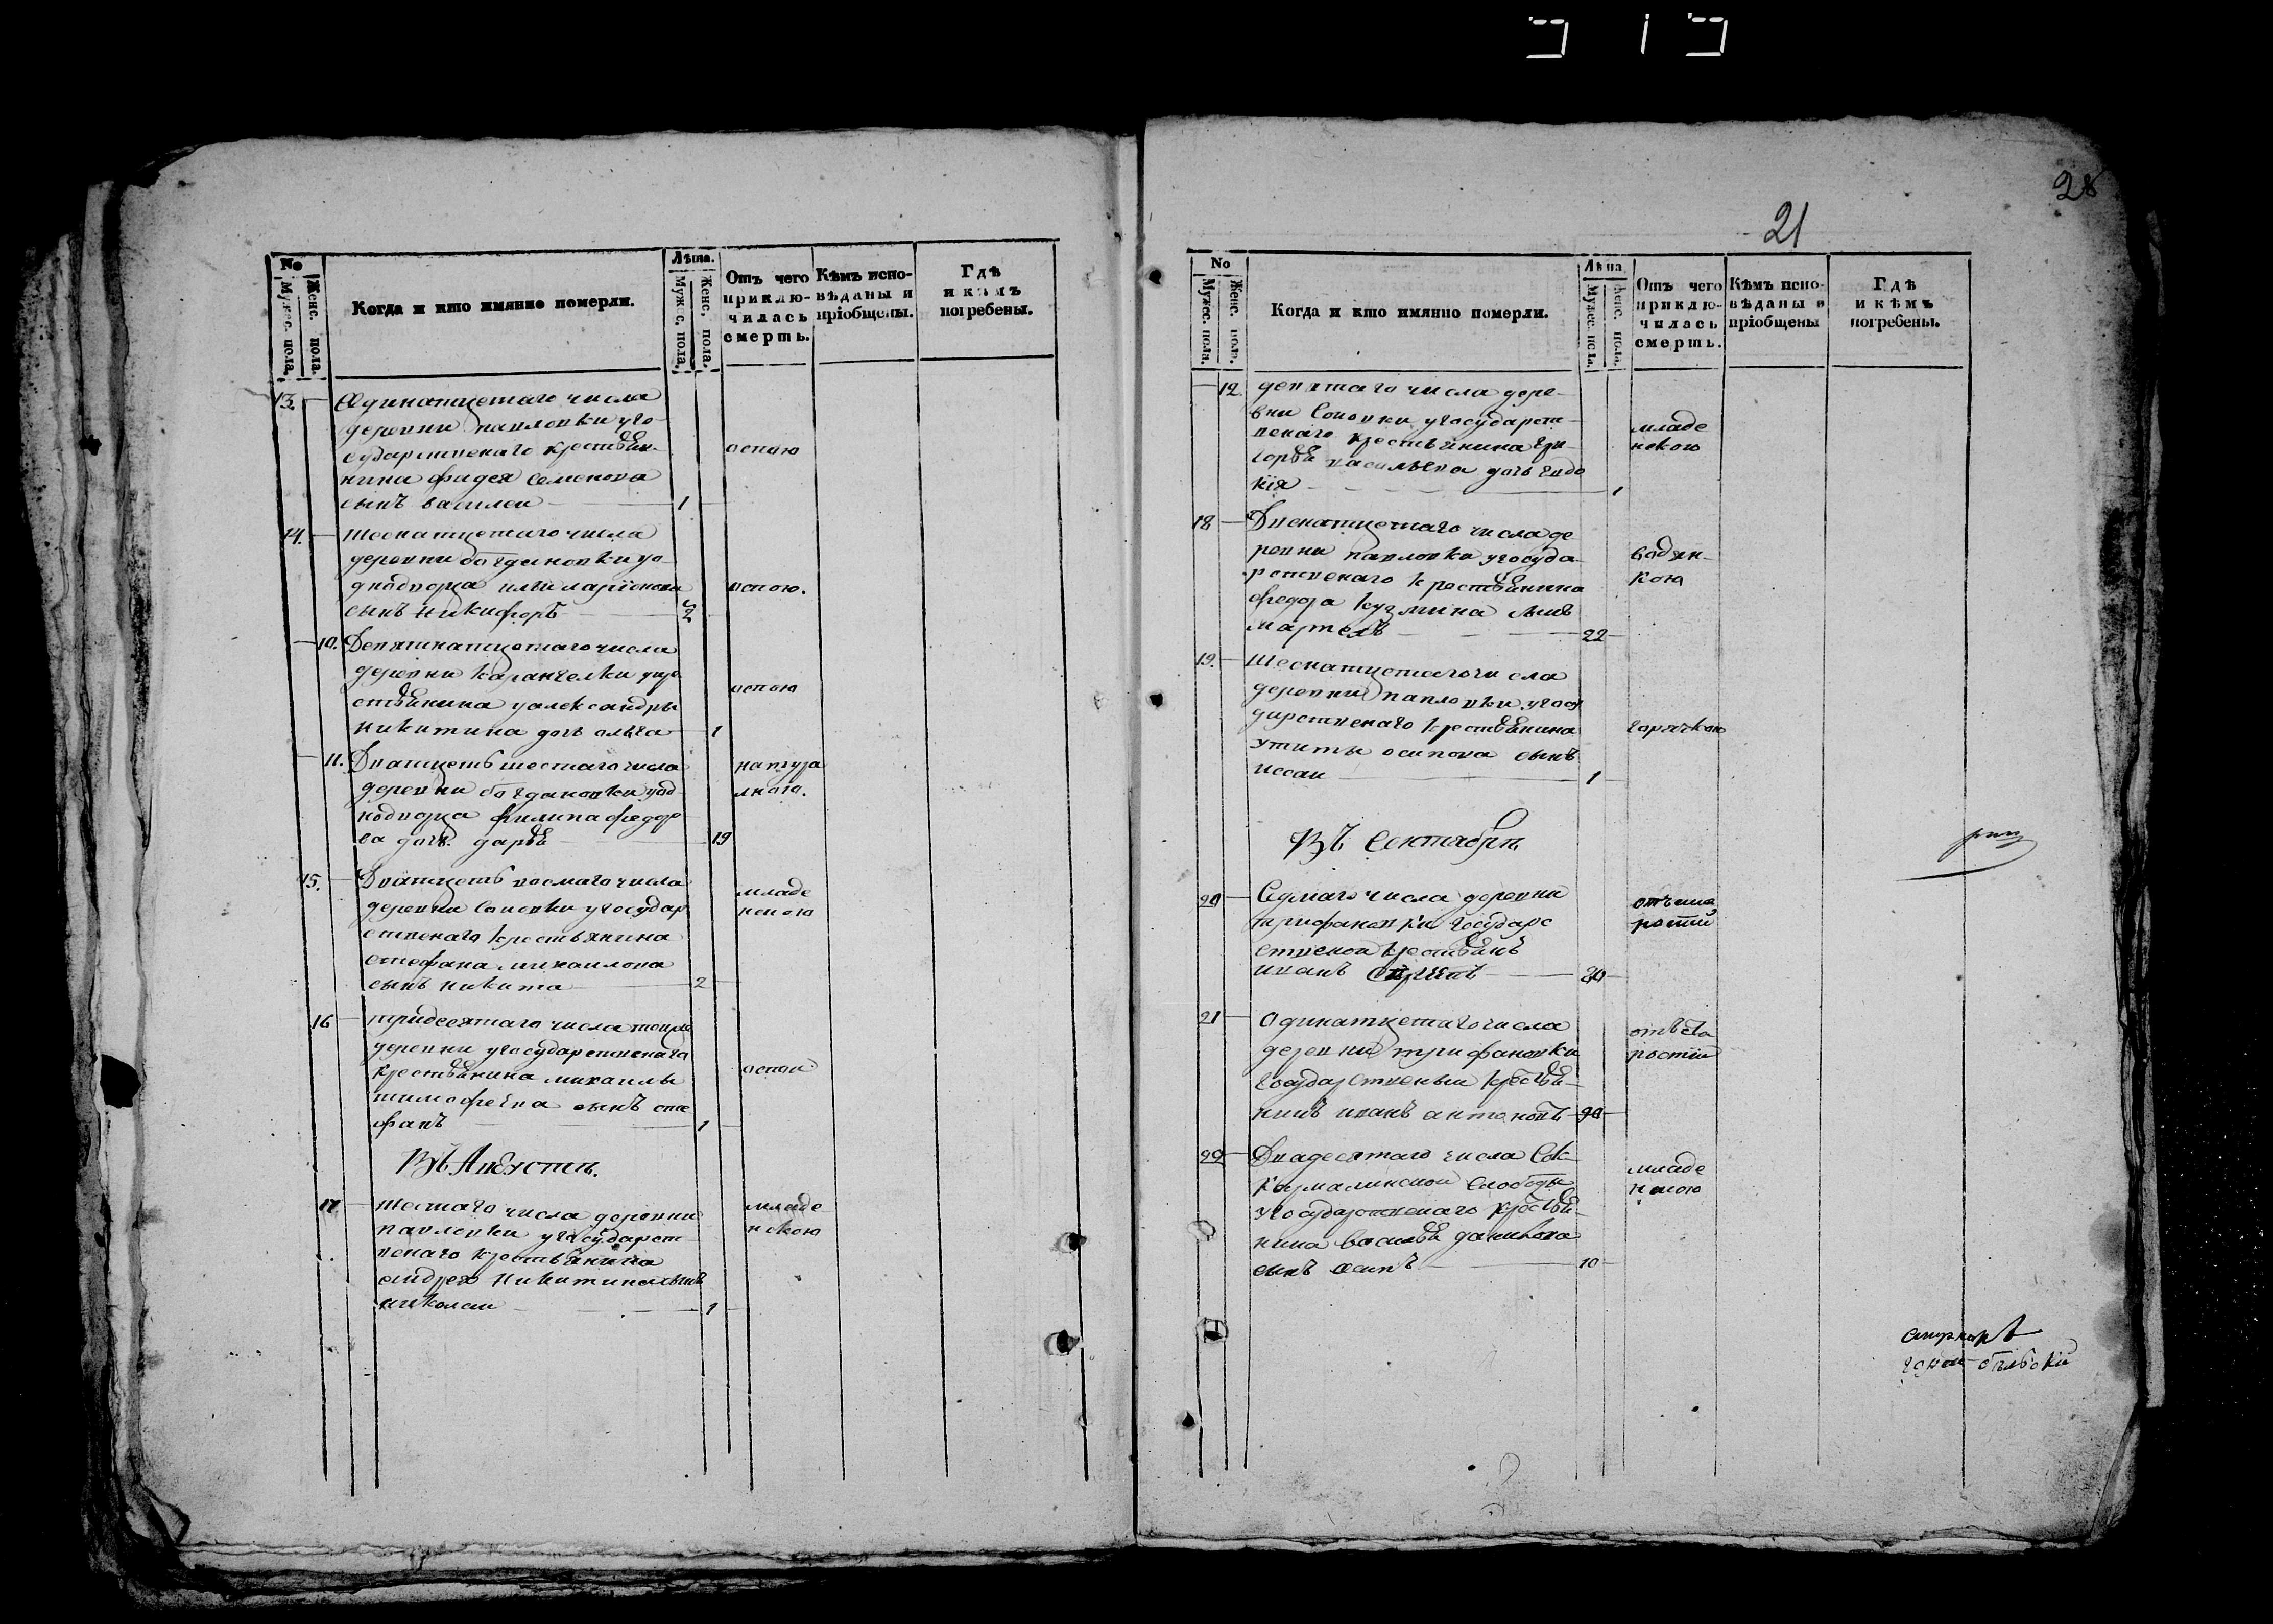 28
21
No
Мужес. пола.
Женс. пола.
Когда и кто имянно померли.
Лѣта.
Мужес. пола.
Женс. пола.
Отъ чего приклю-
чилась
смерть.
Кѣмъ испо-
вѣданы и
пріобщены.
Гдѣ
и кѣмъ
погребены.
13. Одинатцетаго числа
деревни павловки уго-
сударственаго крестьян-
нина фадея Семенова
сынъ василеи 1
оспою
14. шеснатцетаго числа
деревни богдановки уо-
днодворца иларионова
сынъ никифоръ
оспою.
10. Девятинатцетаго числа
деревни каранчелки укре
стьянина александры
никитина дочь ольга 1
оспою
11. Дватцеть шестаго числа
деревни богдановки уод-
нодворца филипа федоро
ва дочь дарья 19
натура
лною.
15. Дватцеть восмаго числа
деревни Соповки угосудар
ственаго крестьянина
стефана михаилова
сынъ никита 2
младе
нскою
16 тридесятаго числа тоиже
деревни угосударственаго
крестьянина михаилы
тимофеева сынъ сте
фанъ 1
оспои
Въ Августе.
17 шестаго числа деревни
павловки угосударст
венаго крестьянина
андрея никитина сынъ
николаи 1
младе
нскою
No
Мужес. пола.
Женс. пола.
Когда и кто имянно померли.
Лѣта
Мужес. пола.
Женс. пола.
Отъ чего
приклю-
чилась
смерть.
Кѣмъ испо-
вѣданы и
пріобщены
Гдѣ
и кѣмъ
погребены.
12. девятаго числа дере-
вни Соповки угосударст-
венаго крестьянина гри-
горья васильева дочь евдо
кія 1
младе
нскою
18 Двенатцетаго числа де
ревни павловки угосуда-
рственаго крестьянина
федора кузмина сынъ
22
водян-
кою
19. Шеснатцетаго числа
деревни павловки угосу
дарственаго крестьянина
осипова сынъ
1
горячкою
Въ Сентябрѣ
20 Седмаго числа деревни
трифановки государс
ственои крестьянъ
иванъ
рости
21 Одинатцетаго числа
деревни трифановки
государственыи крестья-
нинъ иванъ антоновъ 90
отъ ста
рости
22 Двадесятаго числа Сок-
кармалинскои слободы
угосударственаго крестья-
нина василья данилова
сынъ осипъ 10
младе
нскою